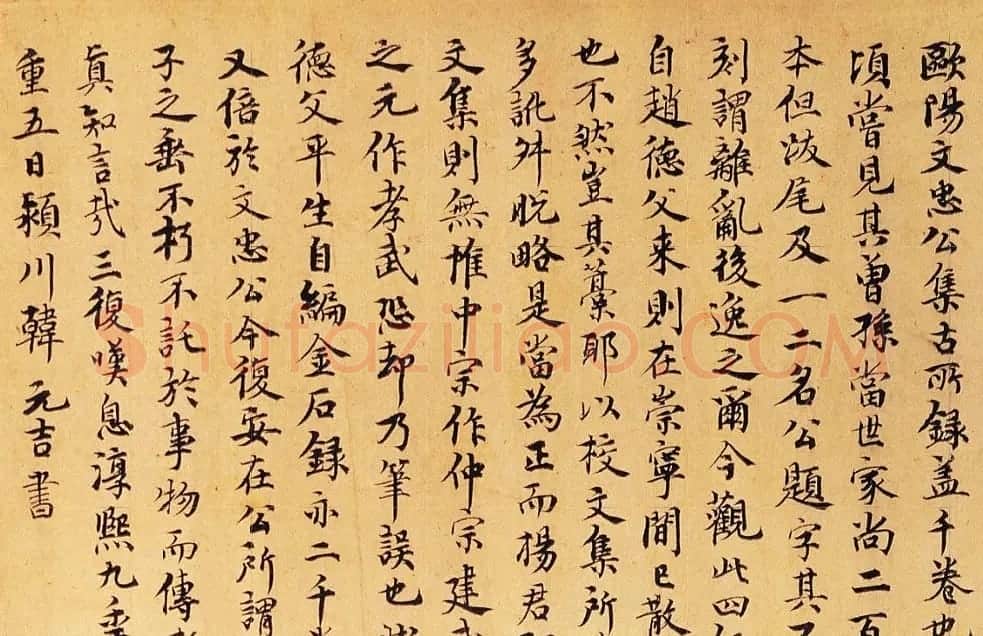 歐陽文忠公集古所録盖千卷也
頃嘗見其曽孫當世家尚二百
本但跋尾及一二名公題字其
刻謂離亂後逸之爾今觀此四
自趙德父来則在崇寧間已散
也不然豈其藁耶以校文集所
多訛舛脱略是當為正而楊君
文集則無惟中宗作仲宗建
之元作孝武恐却乃筆誤也
德父平生自編金石録亦二千
又倍於文忠公今復安在公所謂
子之垂不朽不託於事物而傳
真知言哉三復嘆息淳熙九
重五日潁川韓元吉書
Shufaziliao.COM